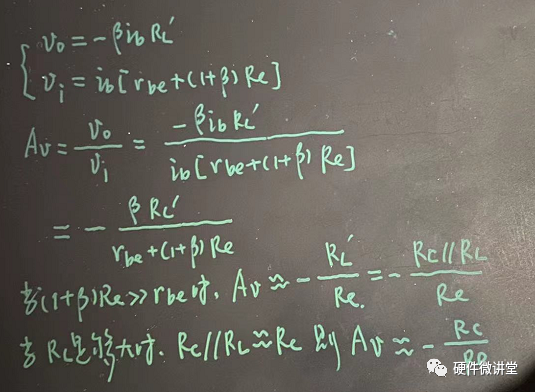 { v₀ = -βi_b R_L'
v_i = i_b[r_be+(1+β)Re]
Av = v₀/v_i = -βi_b R_L' / i_b[r_be+(1+β)Re]
= - βR_L' / r_be+(1+β)Re
当(1+β)Re>>r_be时, Av≈ - R_L'/Re. = - Rc//R_L / Re
当R_L足够大时. Rc//R_L≈Rc 则 Av≈ - Rc/Re
硬件微讲堂